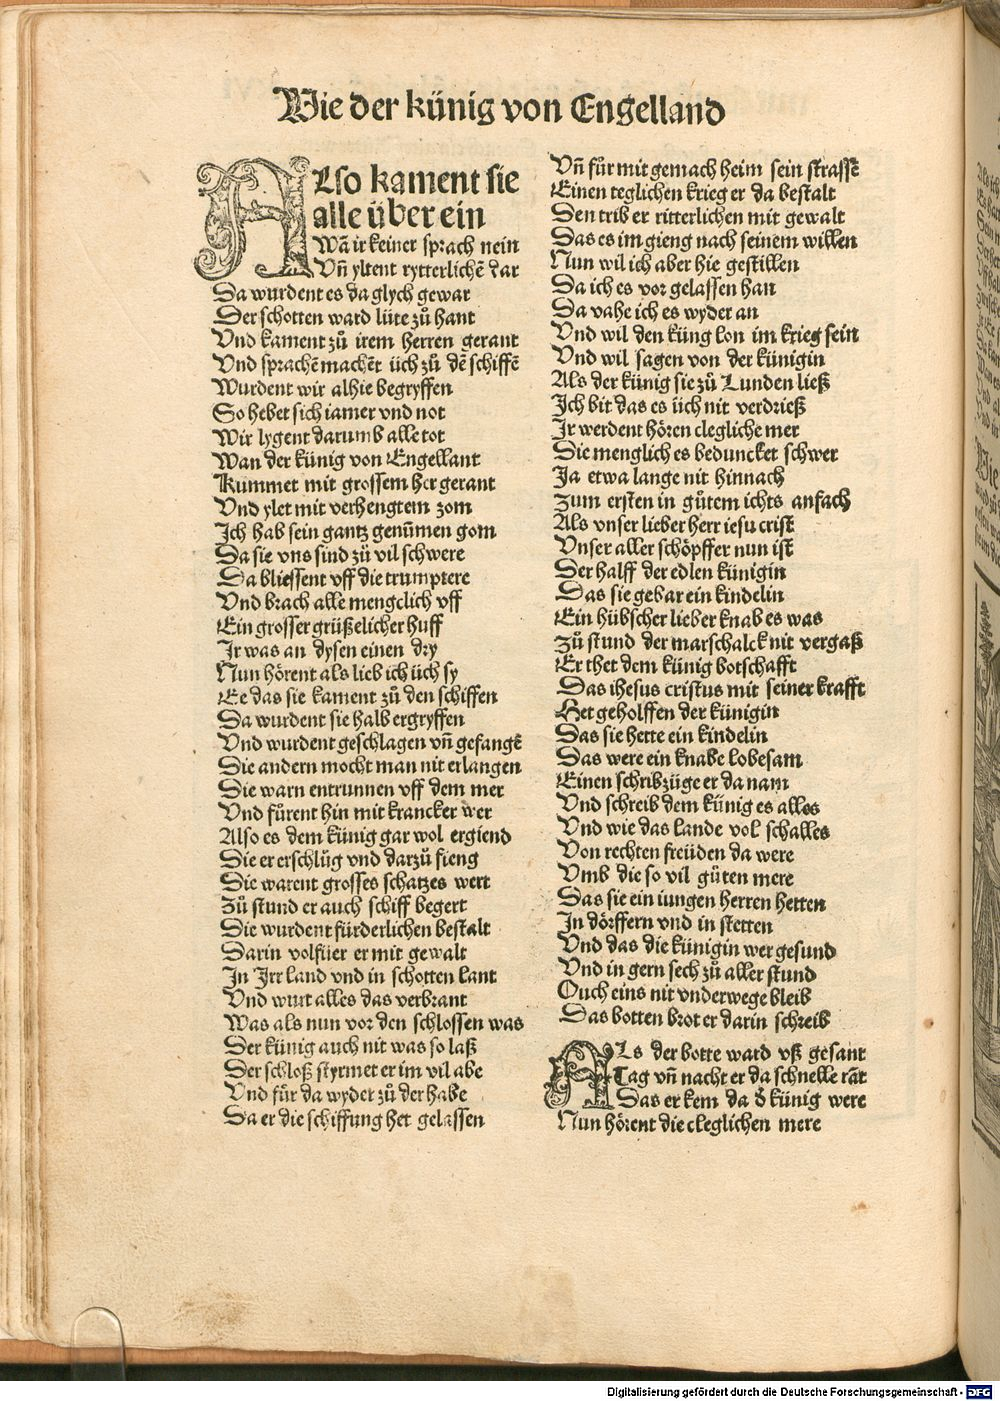 Wie der künig von Engelland
ALso kament sie
alle über ein
Wā ir keiner sprach nein
Vñ yltent rytterlichē dar
Da wurdent es da glych gewar
Der schotten ward lüte zů hant
Vnd kament zů irem herren gerant
Vnd sprachē machēt üch zů dē schiffē
Wurdent wir alhie begryffen
So hebet sich iamer vnd not
Wir lygent darumb alle tot
Wan der künig von Engellant
Kummet mit grossem her gerant
Vnd ylet mit verhengtem zom
Ich hab sein gantz genūmen gom
Da sie vns sind zů vil schwere
Da bliessent vff die trumptere
Vnd brach alle mengclich vff
Ein grosser grüßelicher huff
Ir was an dysen einen dry
Nun hörent als lieb ich üch sy
Ee das sie kament zů den schiffen
Da wurdent sie halb ergryffen
Vnd wurdent geschlagen vñ gefangē
Die andern mocht man nit erlangen
Die warn entrunnen vff dem mer
Vnd fůrent hin mit krancker wer
Also es dem künig gar wol ergiend
Die er erschlůg vnd darzů fieng
Die warent grosses schatzes wert
Zů stund er auch schiff begert
Die wurdent fürderlichen bestalt
Darin volfůer er mit gewalt
In Irr land vnd in schotten lant
Vnd wůt alles das verbrant
Was als nun vor den schlossen was
Der künig auch nit was so laß
Der schloß styrmet er im vil abe
Vnd fůr da wyder zů der habe
Da er die schiffung het gelassen
Vñ fůr mit gemach heim sein strassē
Einen teglichen krieg er da bestalt
Den trib er ritterlichen mit gewalt
Das es im gieng nach seinem willen
Nun wil ich aber hie gestillen
Da ich es vor gelassen han
Da vahe ich es wyder an
Vnd wil den küng lon im krieg sein
Vnd wil sagen von der künigin
Als der künig sie zů Lunden ließ
Ich bit das es üch nit verdrieß
Ir werdent hören clegliche mer
Die menglich es beduncket schwer
Ja etwa lange nit hinnach
Zum ersten in gůtem ichts anfach
Als vnser lieber herr iesu crist
Vnser aller schöpffer nun ist
Der halff der edlen künigin
Das sie gebar ein kindelin
Ein hübscher lieber knab es was
Zů stund der marschalck nit vergaß
Er thet dem künig botschafft
Das ihesus cristus mit seiner krafft
Het geholffen der künigin
Das sie hette ein kindelin
Das were ein knabe lobesam
Einen schribzüge er da nam
Vnd schreib dem künig es alles
Vnd wie das lande vol schalles
Von rechten freüden da were
Vmb die so vil gůten mere
Das sie ein iungen herren hetten
In dörffern vnd in stetten
Vnd das die künigin wer gesund
Vnd in gern sech zů aller stund
Ouch eins nit vnderwege bleib
Das botten brot er darin schreib
ALs der botte ward vß gesant
Tag vñ nacht er da schnelle rāt
Das er kem da d̄ künig were
Nun hörent die cleglichen mere
Digitalisierung gefördert durch die Deutsche Forschungsgemeinschaft - DFG